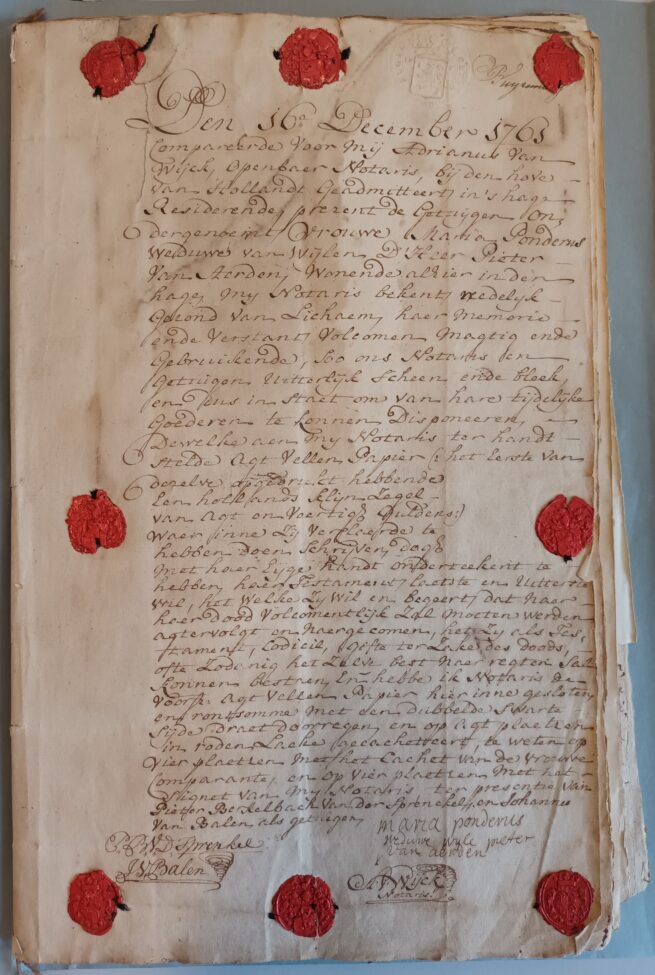 Den 16e December 1761
Compareerde voor mij Adrianus van
Wijck, Openbaer Notaris, bij den hove
van Hollandt Geadmitteert, in 's hage
Residerende, present de Getuijgen On,
dergenoemt Vrouwe Maria Ponderus
Weduwe van Wijlen D'Heer Pieter
van Aerden, Wonende alhier in den
hage, mij Notaris bekent, redelijk
Gesond van Lichaem, haer Memorie
ende Verstant, Volcomen Magtig ende
Gebruikende, soo ons Notaris en
Getuigen Uitterlijk Scheen ende bleek,
en dus in staet om van hare tijdelijke
Goederen te konnen Disponeeren,
Dewelke aen mij Notaris ter handt
stelde Agt Vellen Papier (: het Eerste van
dezelve opgedrukt hebbende
Een hollands Klijn Zegel
van Agt en Veertig Guldens:)
Waer inne Zij Verclaerde te
hebben doen Schrijven, dog
Met haer Eijge handt onderteekent te
hebben haer Testament, laetste en Uitterste
Wil, het Welke Zij Wil en begeert, dat naer
haer dood Volcomentlijk Zal moeten werden
agtervolgt en naergecomen, het Zij als Tes,
tament, Codicil, Gifte ter Zake des doods,
ofte Zodanig het Zelve best naer regten Sal
Konnen bestaen, En hebbe ik Notaris de
voors: Agt Vellen Papier hier inne gesloten
en rontsomme Met een dubbelde Swarte
Sijde draet doorregen, en op agt plaetsen
in roden Lacke gecachetteert, te weten op
Vier plaetsen Met het Cachet van de Vrouwe
Comparante, en op vier plaetsen Met het
Signet van Mij Notaris, ter presentie van
Pieter Berkelbach van der Sprenkel, en Johannes
van Balen, als getuigen
maria ponderus
weduwe wijle pieter
van aerden
P.B.V.D. Sprenkel
J.V. Balen
A.V. Wijck
Notaris.